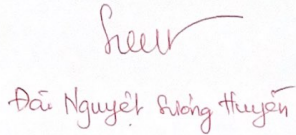 Đài Nguyệt Sương Huyền